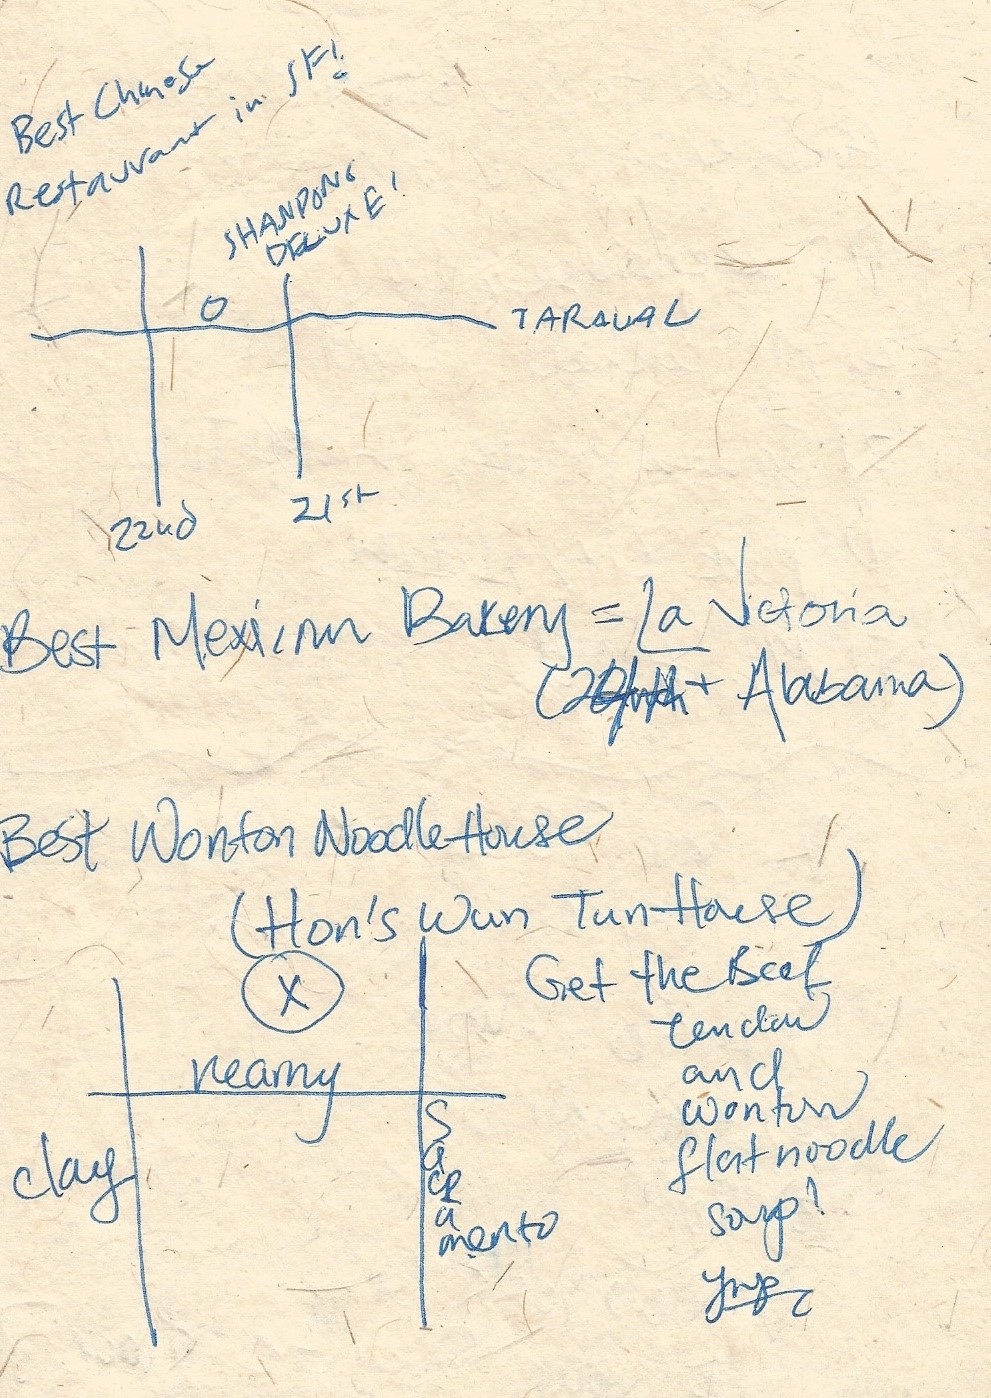 Best Chinese
Restaurant in SF!
SHANDONG
DELUXE!
TARAVAL
22nd
21st
Best Mexican Bakery = La Victoria
+ Alabama)
Best Wonton Noodle House
(Hon's Wun Tun House)
X
Get the Beef
tendon
and
wonton
flat noodle
soup!
kearny
clay
Sacramento